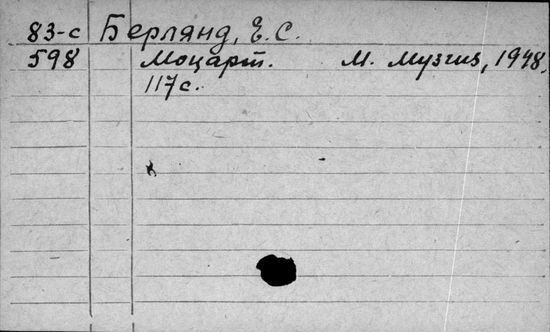 83-с Берлянд, Е.С.
598 Моцарт. М. Музгиз, 1948.
117с.